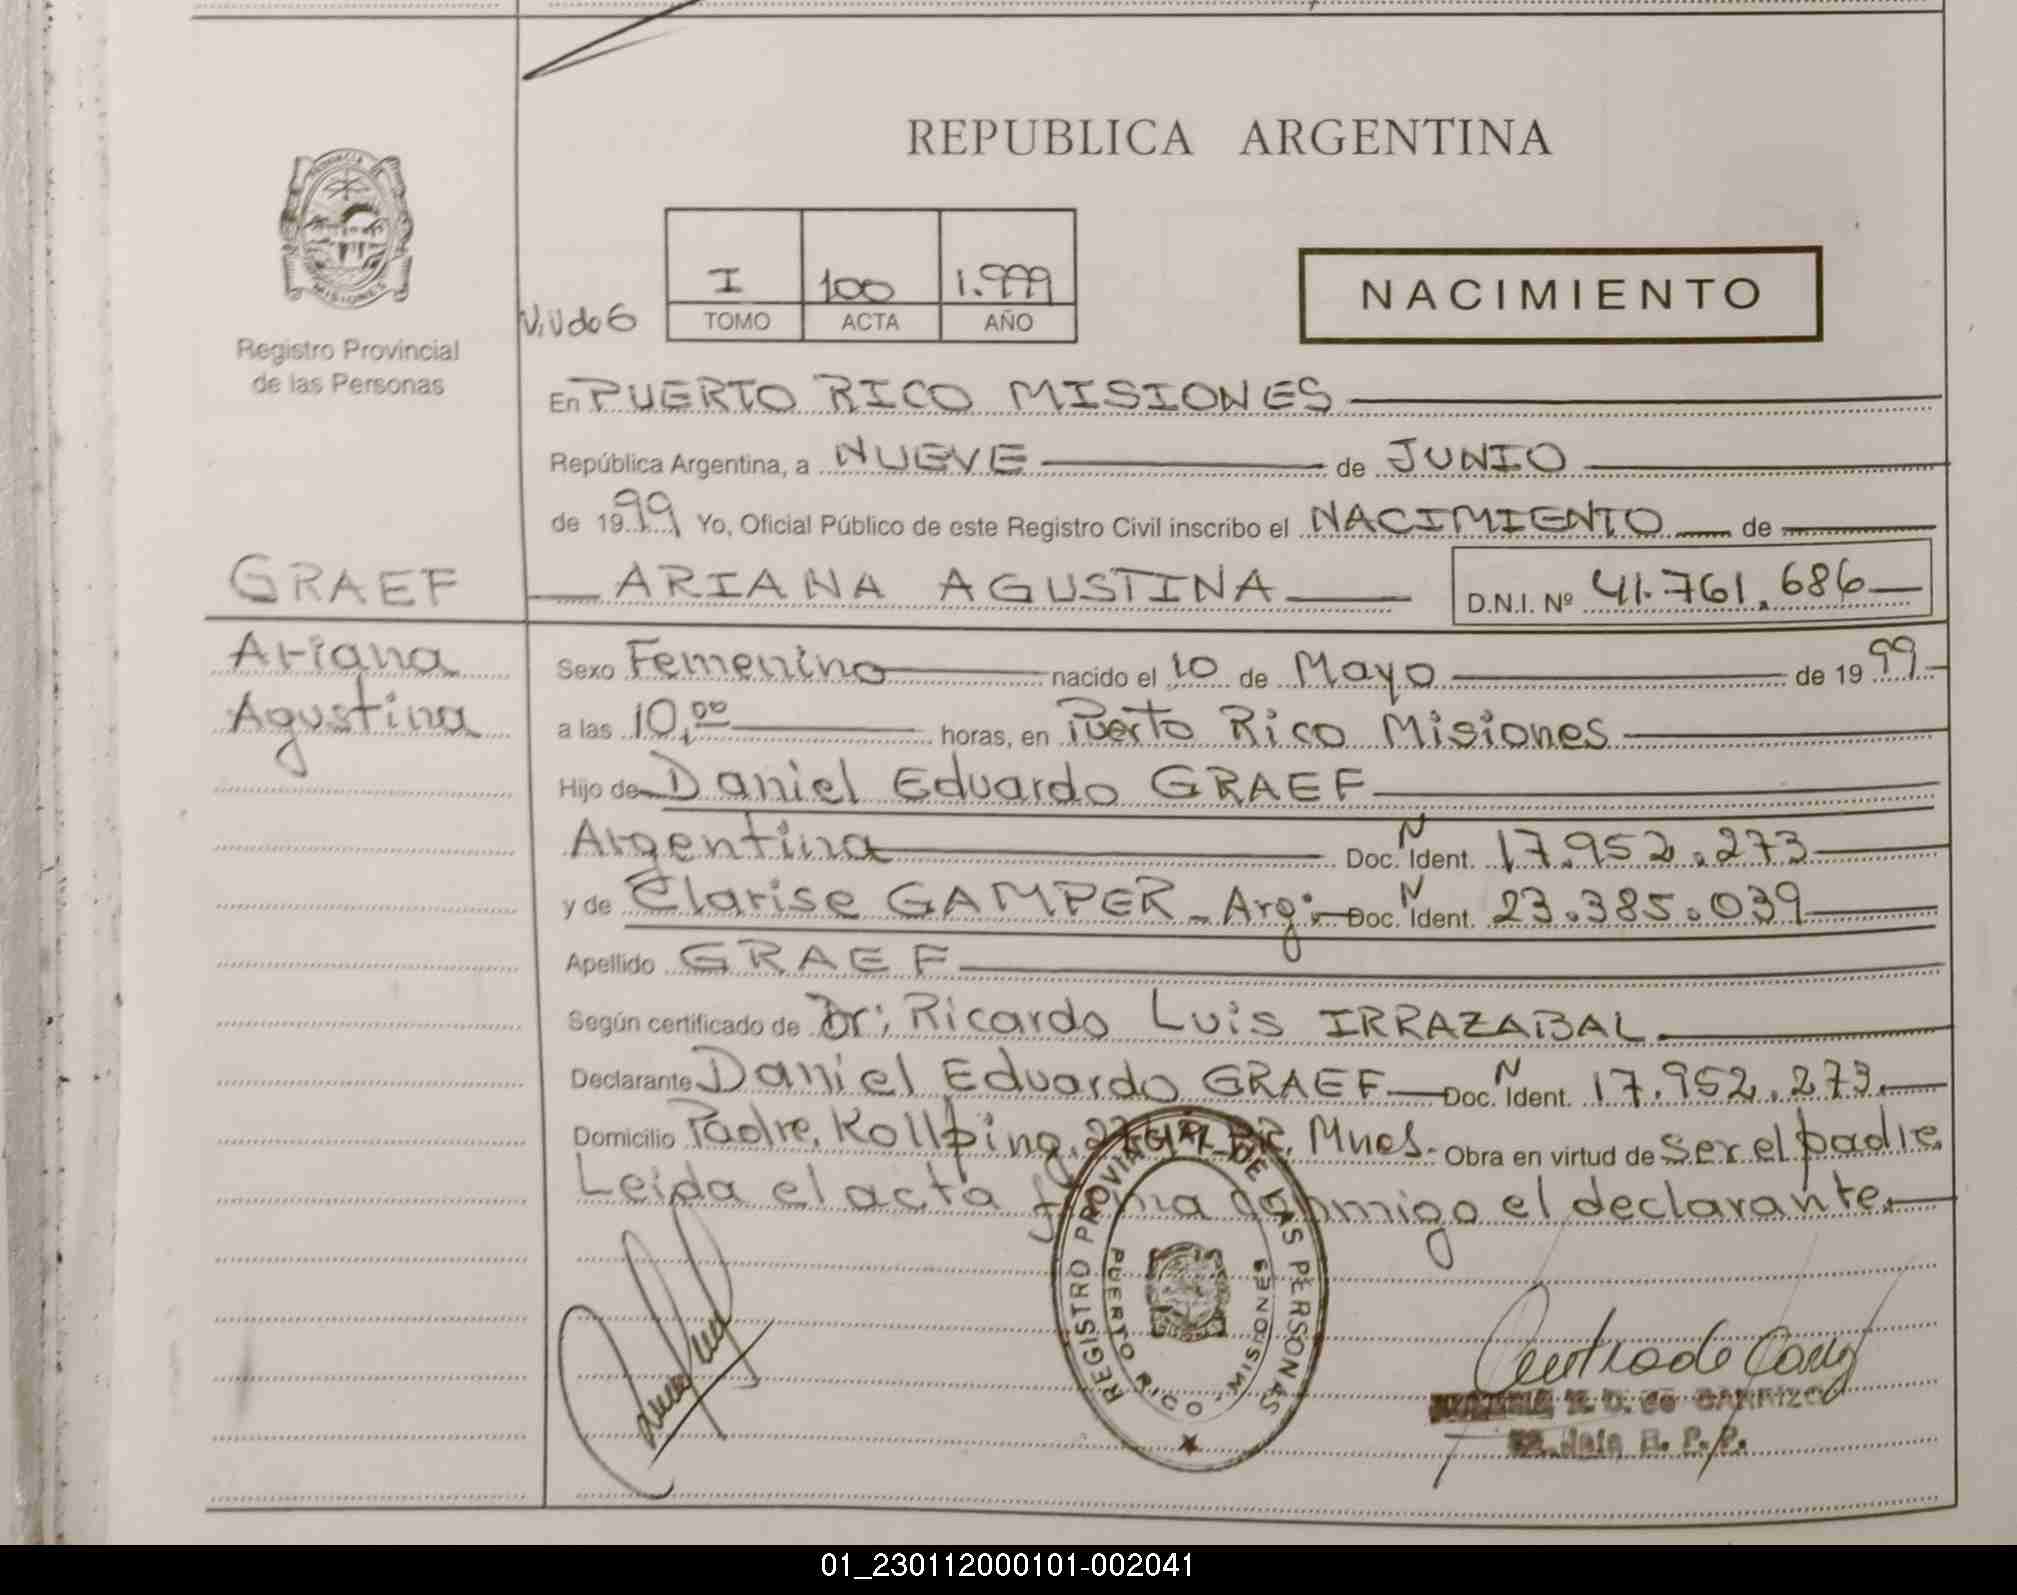 REPUBLICA ARGENTINA
PROVINCIA
MISIONES
Registro Provincial
de las Personas
I 100 1.999
TOMO ACTA AÑO
NACIMIENTO
En PUERTO RICO MISIONES
República Argentina, a NUEVE de JUNIO
de 1999 Yo, Oficial Público de este Registro Civil inscribo el NACIMIENTO de
GRAEF ARIANA AGUSTINA D.N.I. Nº 41.761.686
Ariana
Agustina
Sexo Femenino nacido el 10 de Mayo de 1999
a las 10,00 horas, en Puerto Rico Misiones
Hijo de Daniel Eduardo GRAEF
Argentina Doc. N Ident. 17.952.273
y de Clarise GAMPER - Arg. Doc. N Ident. 23.385.039
Apellido GRAEF
Según certificado de Dr; Ricardo Luis IRRAZABAL
Declarante Daniel Eduardo GRAEF Doc. N Ident. 17.952.273
Domicilio Padre Kollping Mnes. Obra en virtud de ser el padre
Leida el acta firma conmigo el declarante
REGISTRO PROVINCIAL DE LAS PERSONAS
PUERTO RICO - MISIONES
de CARRIZO
01_230112000101-002041